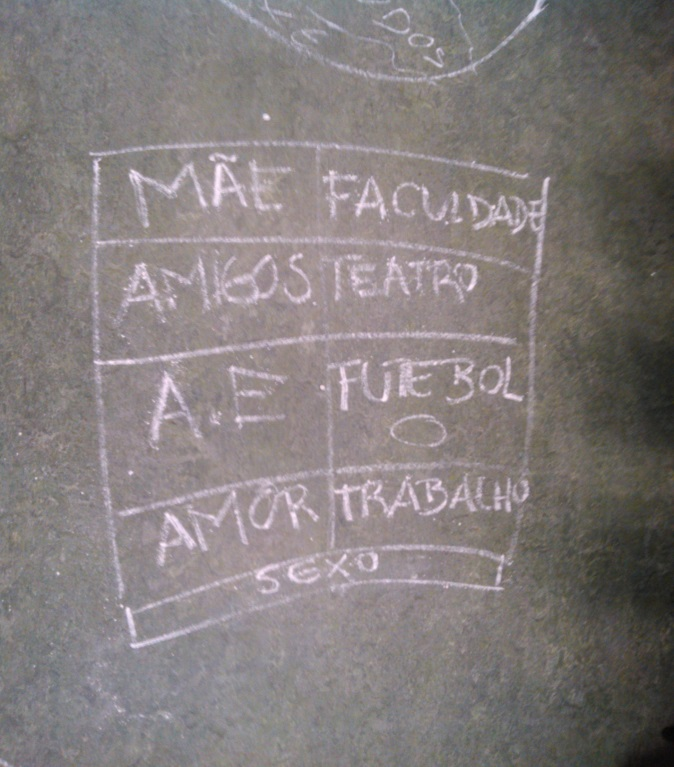 DOS
MÃE FACULDADE
AMIGOS TEATRO
A.E FUTEBOL
AMOR TRABALHO
SEXO